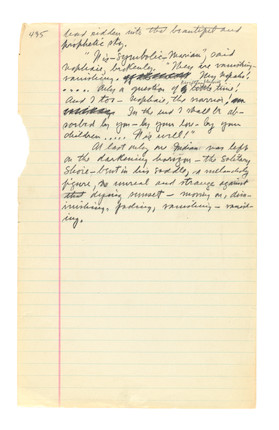 435
had ridden into the beautiful and
prophetic sky.
"It is—symbolic—Marian," said
Nophaie, brokenly. "They are vanishing—
vanishing. My Nopahs!
..... Only a question of a little time!
And I too—Nophaie, the warrior!
In the end I shall be ab-
sorbed by you—by your love—by your
children..... It is well!"
At last only one Indian was left
on the darkening horizon—the solitary
Shoie—bent in his saddle, a melancholy
figure, unreal and strange against
that dying sunset—moving on, dim-
inishing, fading, vanishing—vanish-
ing.